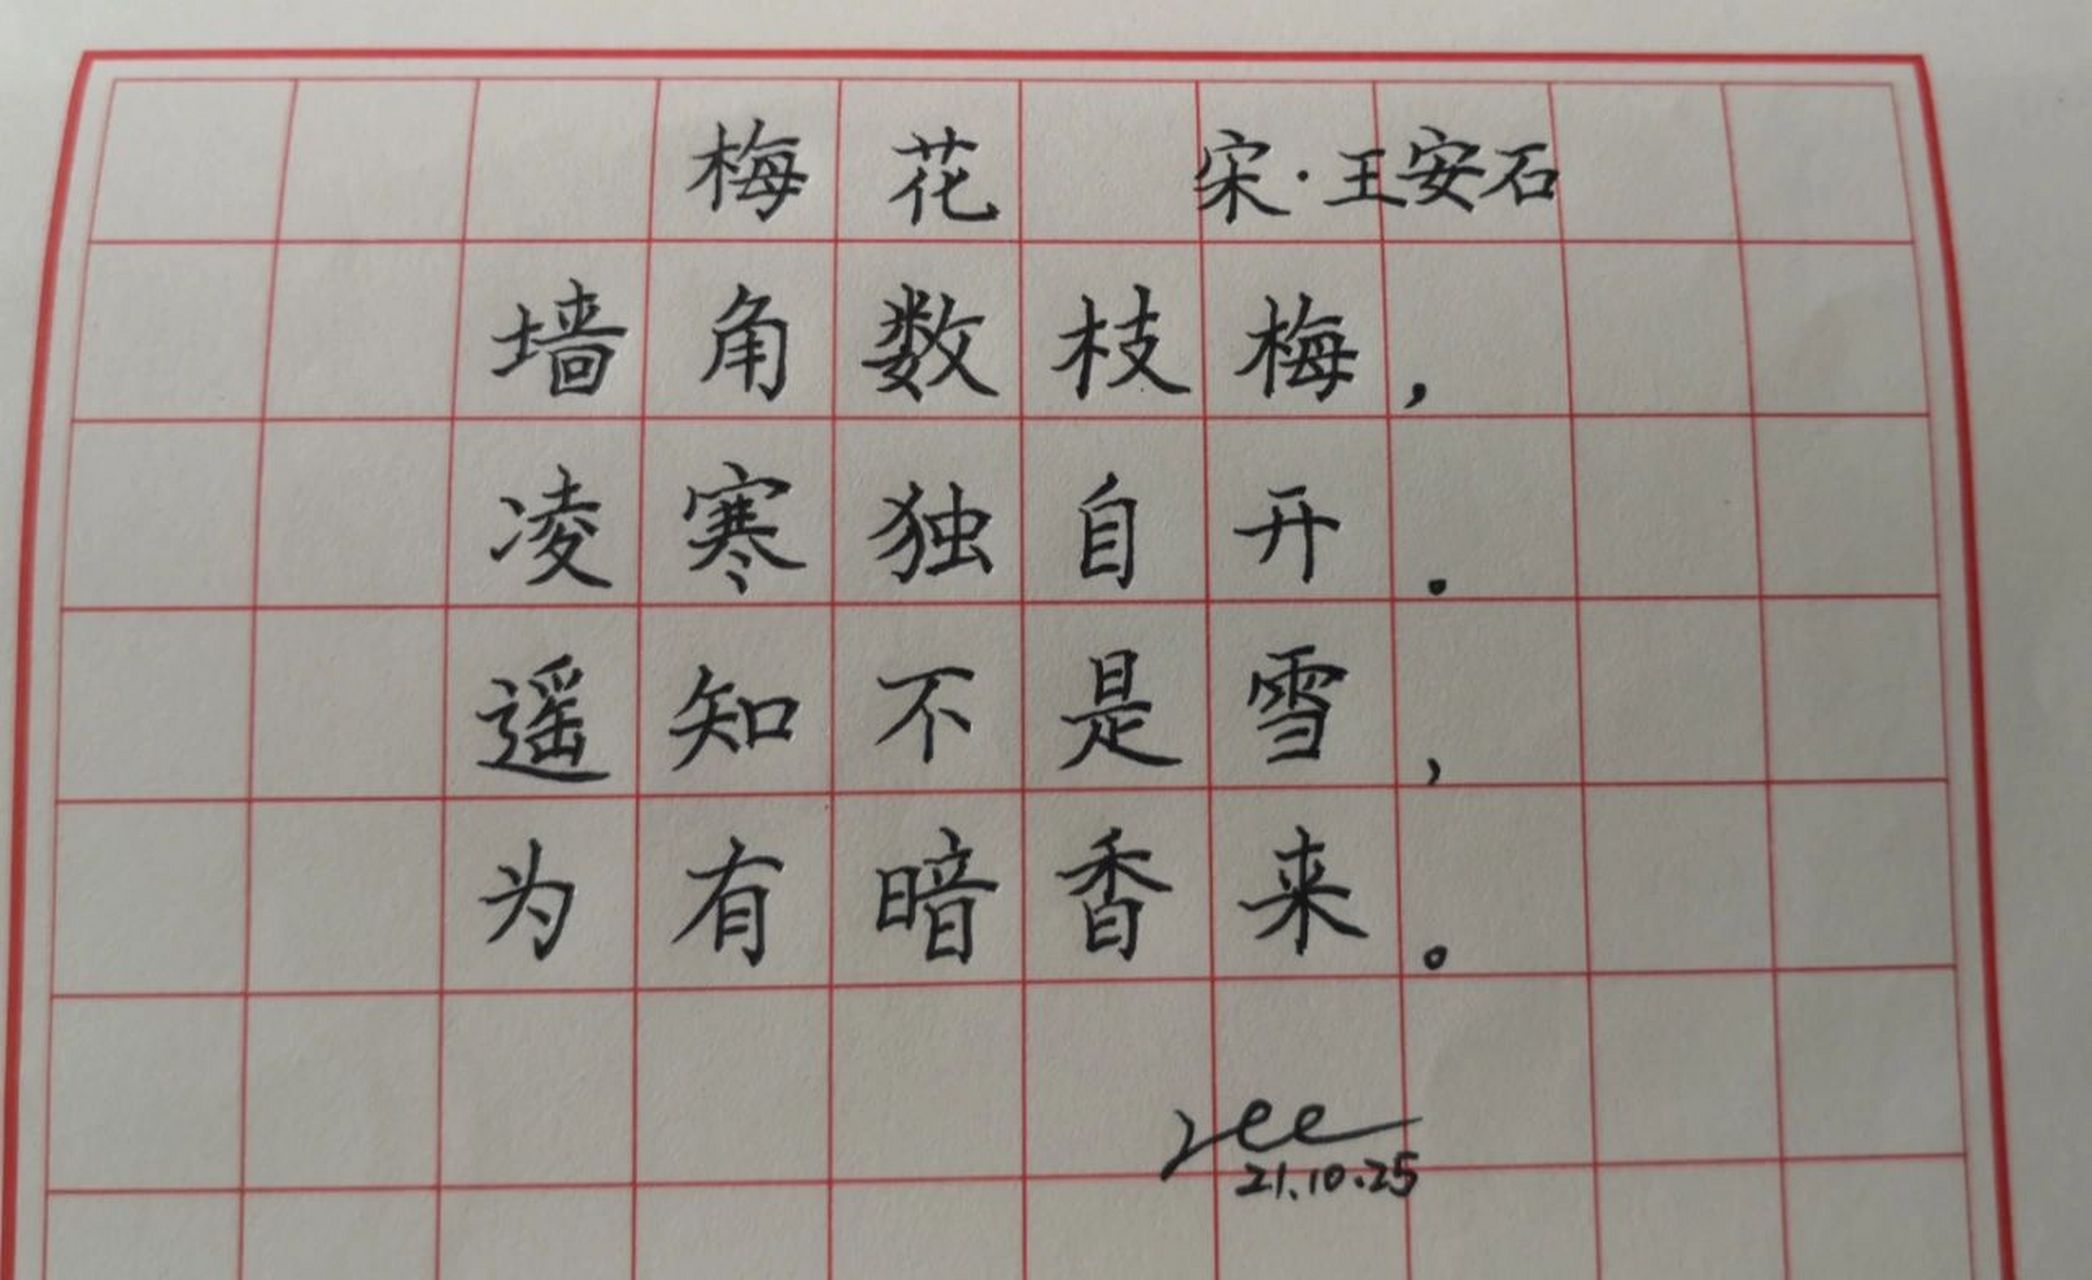 梅花 宋·王安石
墙角数枝梅，
凌寒独自开.
遥知不是雪，
为有暗香来。
Lee
21.10.25